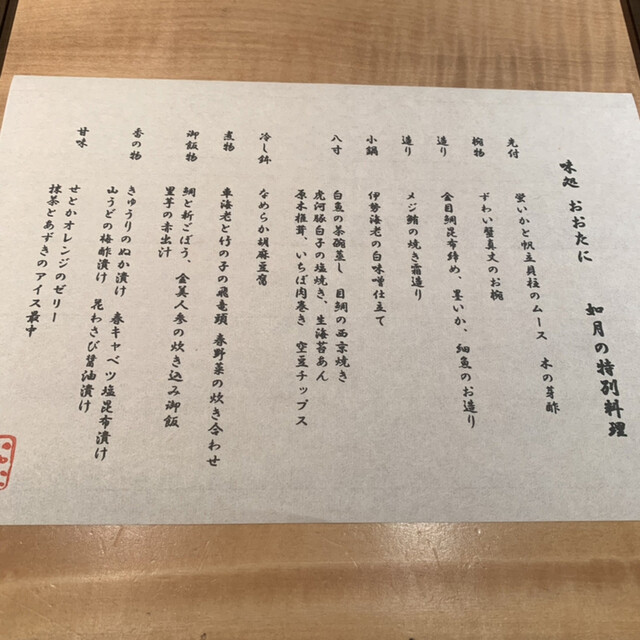 味処 おおたに
如月の特別料理
先付
蛍いかと帆立貝柱のムース 木の芽酢
椀物
ずわい蟹真丈のお椀
造り
金目鯛昆布締め、墨いか、細魚のお造り
造り
メジ鮪の焼き霜造り
小鍋
伊勢海老の白味噌仕立て
八寸
白魚の茶碗蒸し 目鯛の西京焼き
虎河豚白子の塩焼き、生海苔あん
原木椎茸、いちぼ肉巻き 空豆チップス
冷し鉢
なめらか胡麻豆腐
煮物
車海老と竹の子の飛竜頭 春野菜の炊き合わせ
御飯物
鯛と新ごぼう、金美人参の炊き込み御飯
里芋の赤出汁
香の物
きゅうりのぬか漬け 春キャベツ塩昆布漬け
山うどの梅酢漬け 花わさび醤油漬け
甘味
せとかオレンジのゼリー
抹茶とあずきのアイス最中